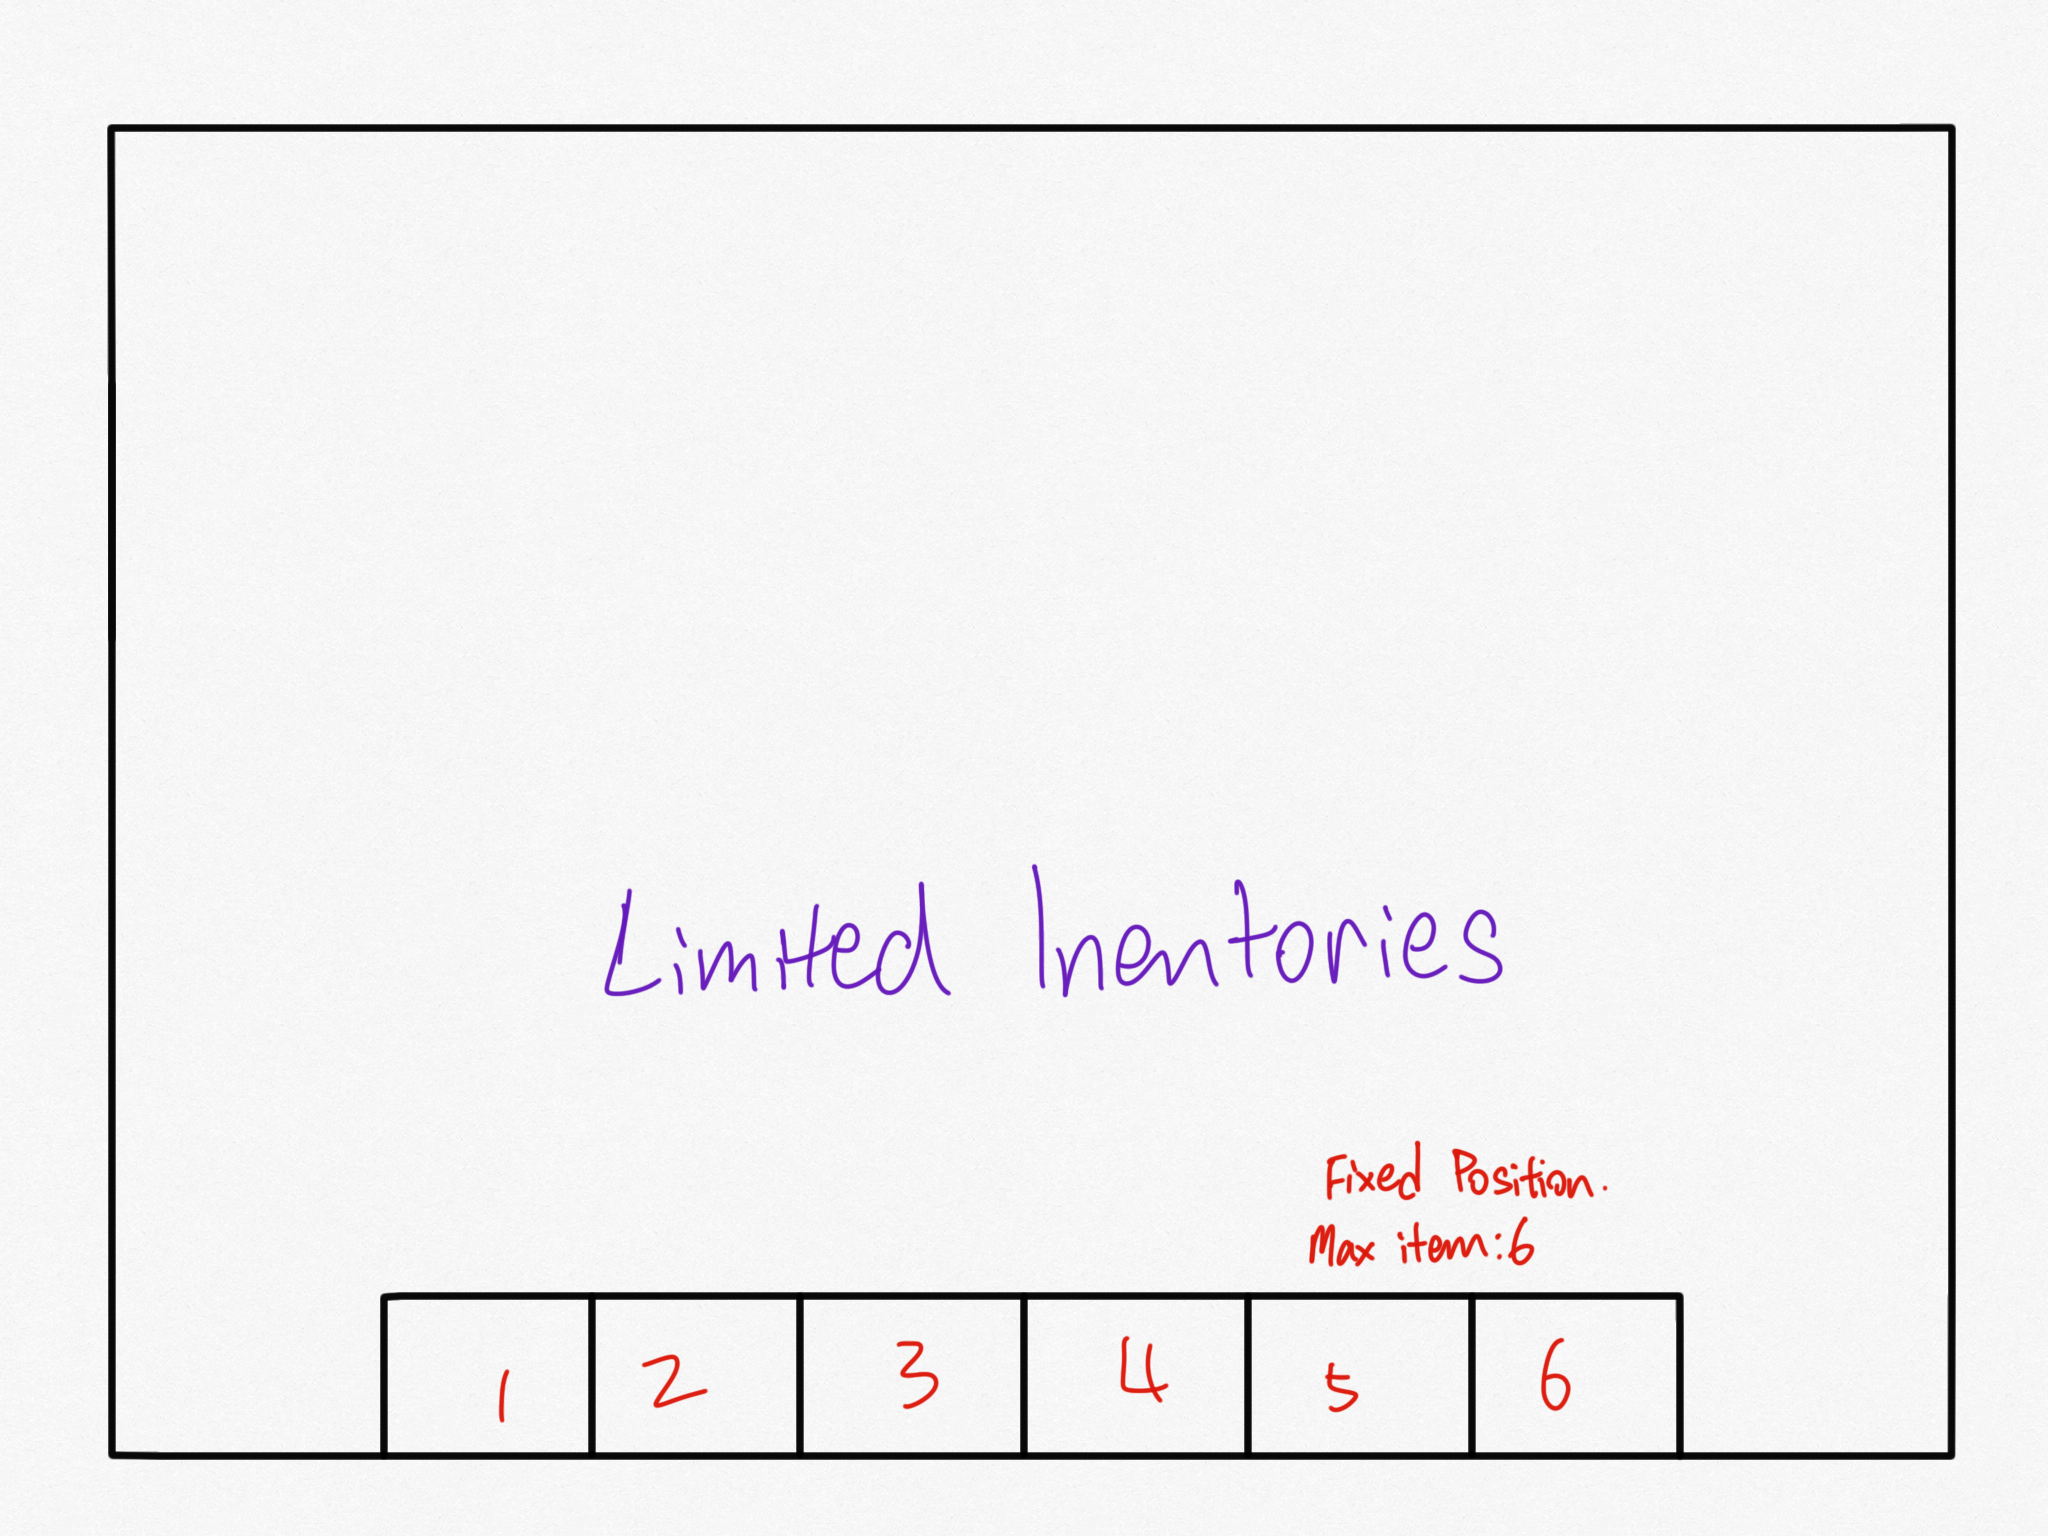 Limited Inentories
Fixed Position.
Max item:6
1 2 3 4 5 6